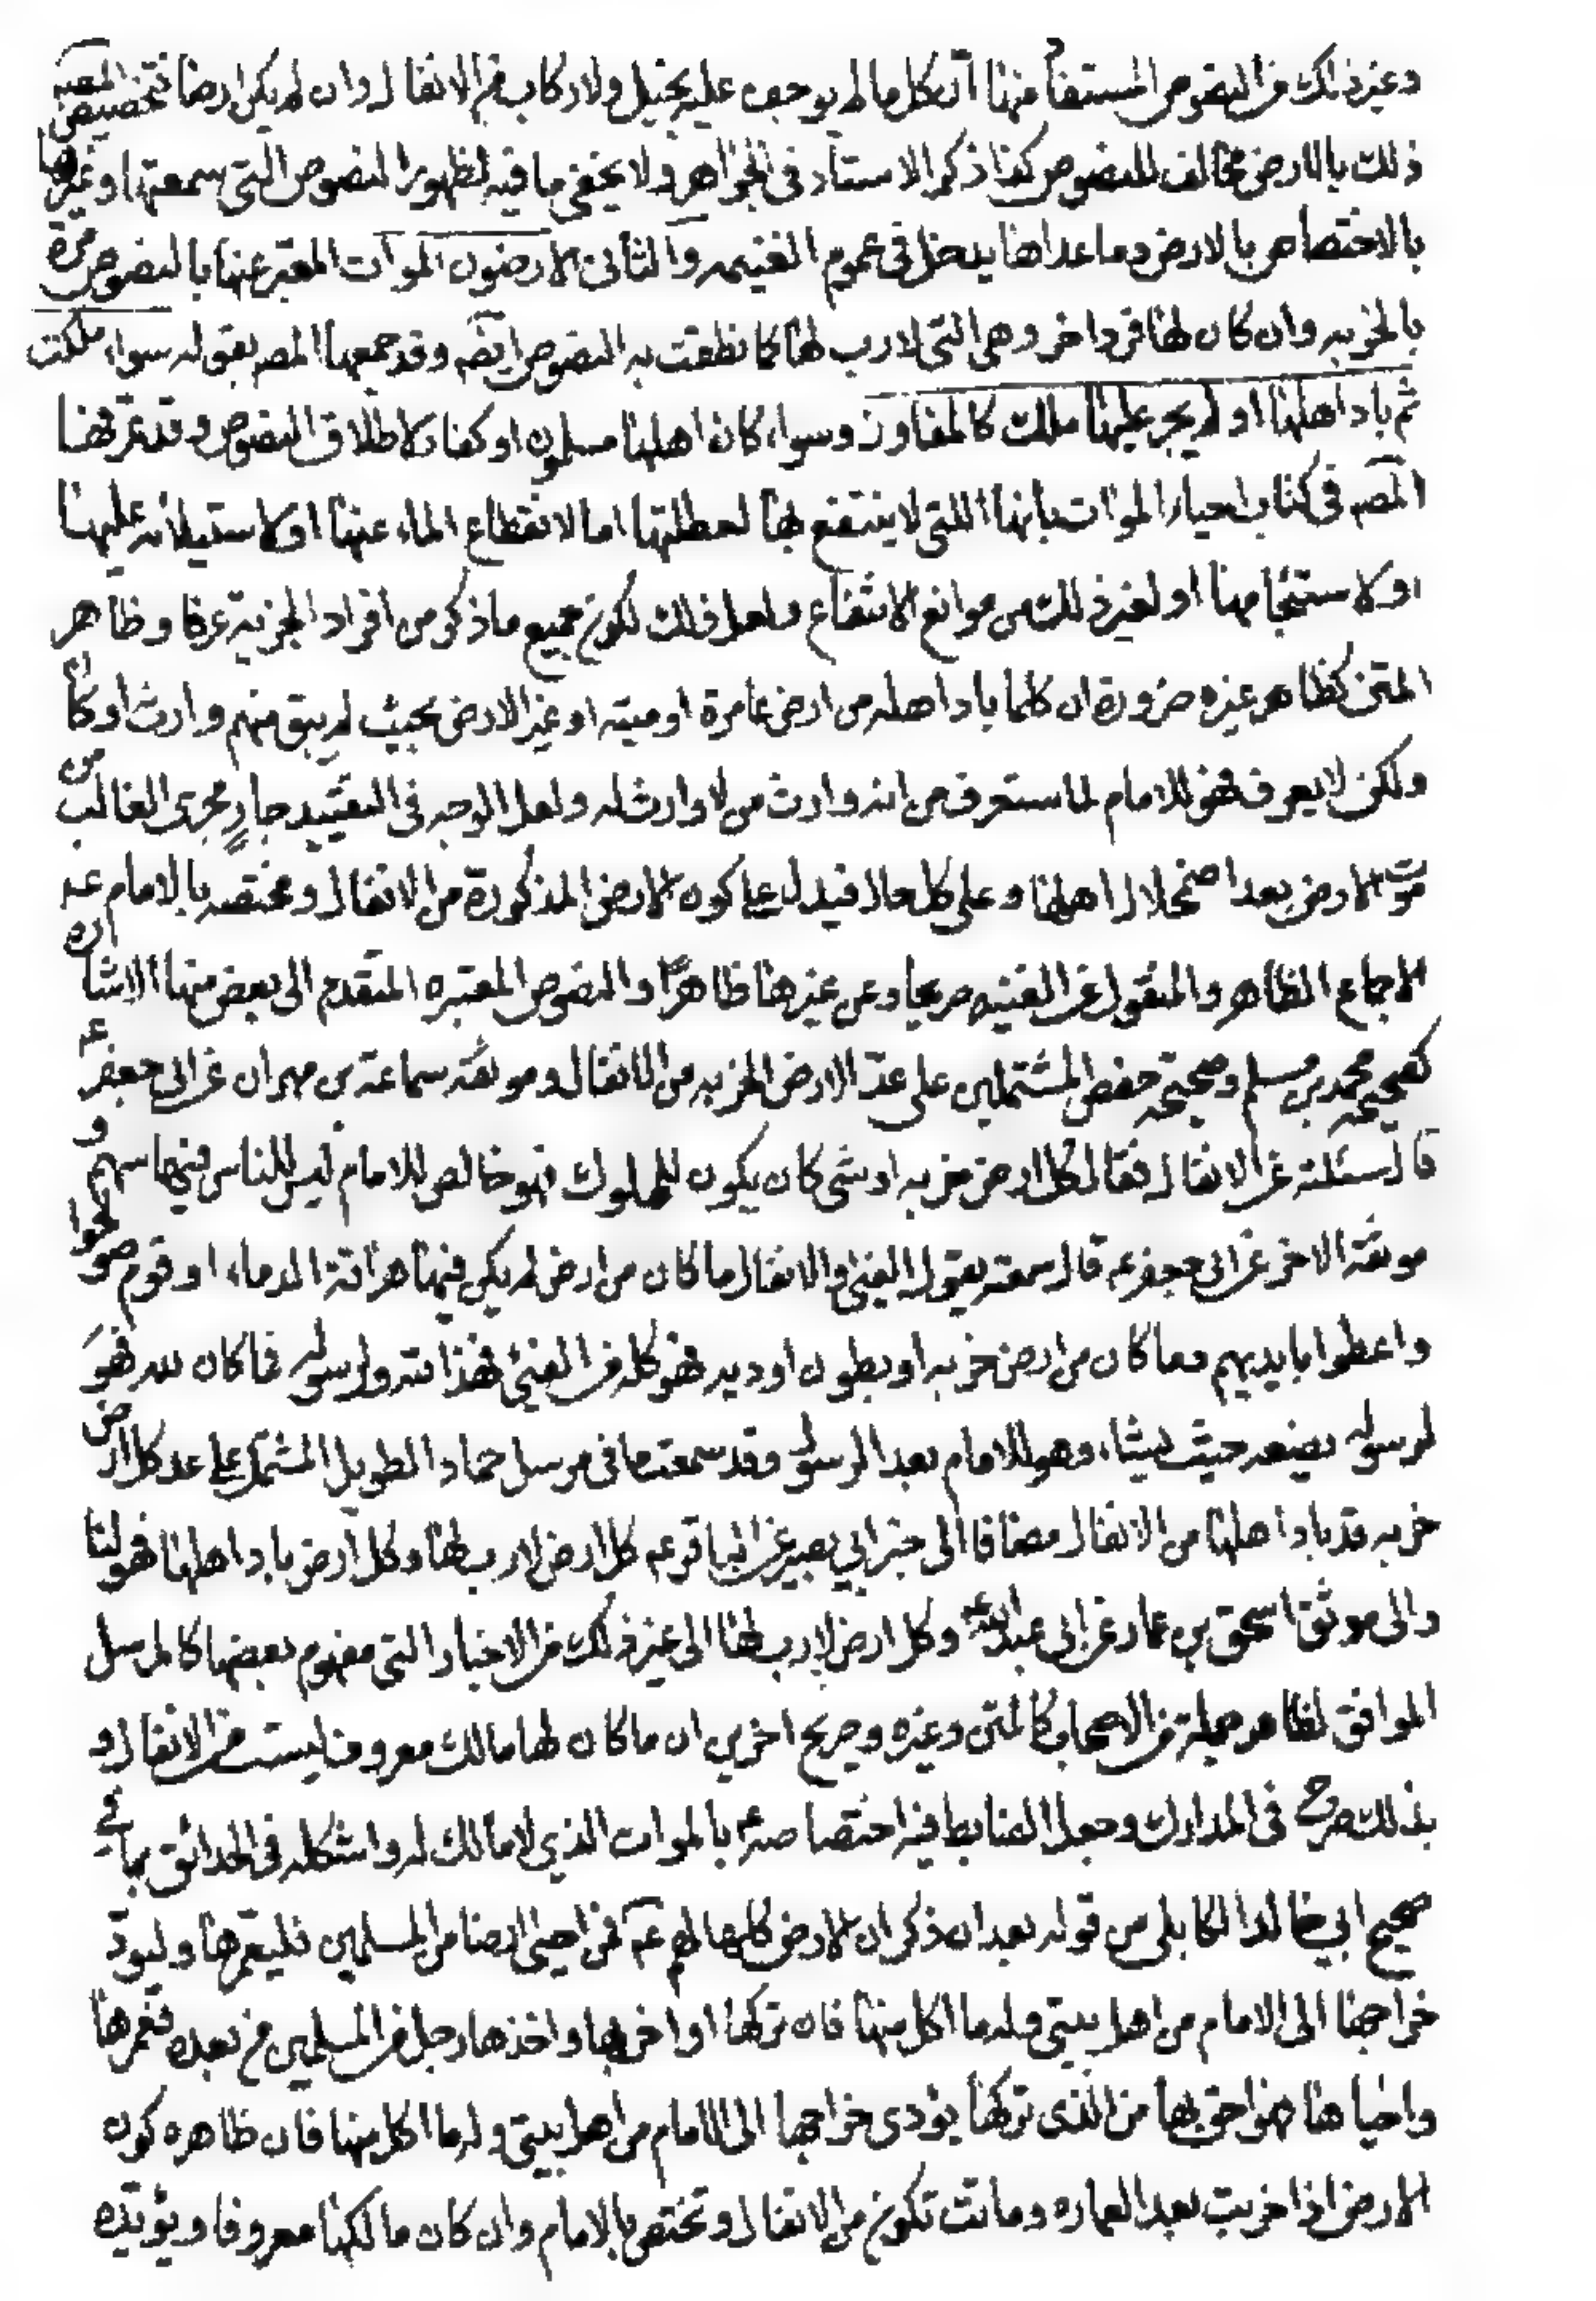 وغير ذلك من النصوص المستفاد منها ان كل ما لم يوجف عليه بخيل ولا ركاب فهو الانفال وان لم يكن ارضا فتخصيص المصنف
ذلك بالارض مخالف للنصوص كذا ذكر الاستاد في الجواهر ولا يخفى ما فيه لظهور النصوص التي سمعتها وغيرها
بالاختصاص بالارض وما عداها يدخل في عموم الغنيمه والثاني الارضون الموات المعبر عنها بالنصوص مرة
بالخربه وان كان لها فرد اخر وهي التي لا رب لها كما نطقت به النصوص ايضا وقد جمعها المصه بقوله سواء ملكت
ثم باد اهلها او لم يجر عليها ملك كالمفاوز وسواء كان اهلها مسلمون او كفار لاطلاق النصوص وقد عرفها
المصه في كتاب احياء الموات بانها التي لا ينتفع بها لعطلتها اما لانقطاع الماء عنها او لاستيلائه عليها
او لاستيجامها او لغير ذلك من موانع الانتفاع ولعل ذلك لكون جميع ما ذكر من افراد الخربة عرفا وظاهر
المتن كظاهر غيره ضرورة ان كلما باد اهله من ارض عامرة او ميته او غير الارض بحيث لم يبق منهم وارث او كان
ولكن لا يعرف فهو للامام لما ستعرف من انه وارث من لا وارث له ولعل الوجه في التقييد جارٍ مجرى الغالب من
موت الارض بعد اضمحلال اهلها وعلى كل حال فيدل على كون الارض المذكورة من الانفال ومختصه بالامام عه
الاجماع الظاهر والمنقول عن الغنيه صريحا وعن غيرها ظاهرًا والنصوص المعتبره المتقدم الى بعض منها الاشاره
كصحيحه محمد بن مسلم وصحيحه حفص المشتملين على عدّ الارض الخربه من الانفال وموثقة سماعة بن مهران عن ابي جعفر عه
قال سئلته عن الانفال فقال كل ارض خربه او شي كان يكون للملوك فهو خالص للامام ليس للناس فيها سهم و
موثقة الاخر عن ابي جعفر عه قال سمعته يقول الفيئ والانفال ما كان من ارض لم يكن فيها هراقة الدماء او قوم صولحوا
واعطوا بايديهم وما كان من ارض خربه او بطون اوديه فهو كله من الفيئ فهذا لله ولرسوله فما كان لله فهو
لرسوله يضعه حيث يشاء وهو للامام بعد الرسول وقد سمعت ما في مرسل حماد الطويل المشتمل على عد كل ارض
خربه قد باد اهلها من الانفال مضافا الى خبر ابي بصير عن الباقر عه كل ارض لا رب لها وكل ارض باد اهلها فهو لنا
والى موثق اسحق بن عمار عن ابي عبد الله عه وكل ارض لا رب لها الى غير ذلك من الاخبار التي مفهوم بعضها كالمرسل
الموافق لظاهر جملة من الاصحاب كالمتن وغيره وصريح اخرين ان ما كان لها مالك معروف ليست من الانفال و
بذلك صرح في المدارك وجعل الضابط فيه اختصاصه بالموات الذي لا مالك له واشكله في الحدائق بما في
صحيح ابي خالد الكابلي من قوله بعد ان ذكر ان الارض كلها لهم عه فمن احيى ارضا من المسلمين فليعمرها وليودّ
خراجها الى الامام من اهل بيتي وله ما اكل منها فان تركها او اخربها واخذها رجل من المسلمين من بعده فعمرها
واحياها فهو احق بها من الذى تركها يؤدى خراجها الى الامام من اهل بيتي وله ما اكل منها فان ظاهره كون
الارض اذا خربت بعد العماره وماتت تكون من الانفال وتختص بالامام وان كان مالكها معروفا ويؤيده